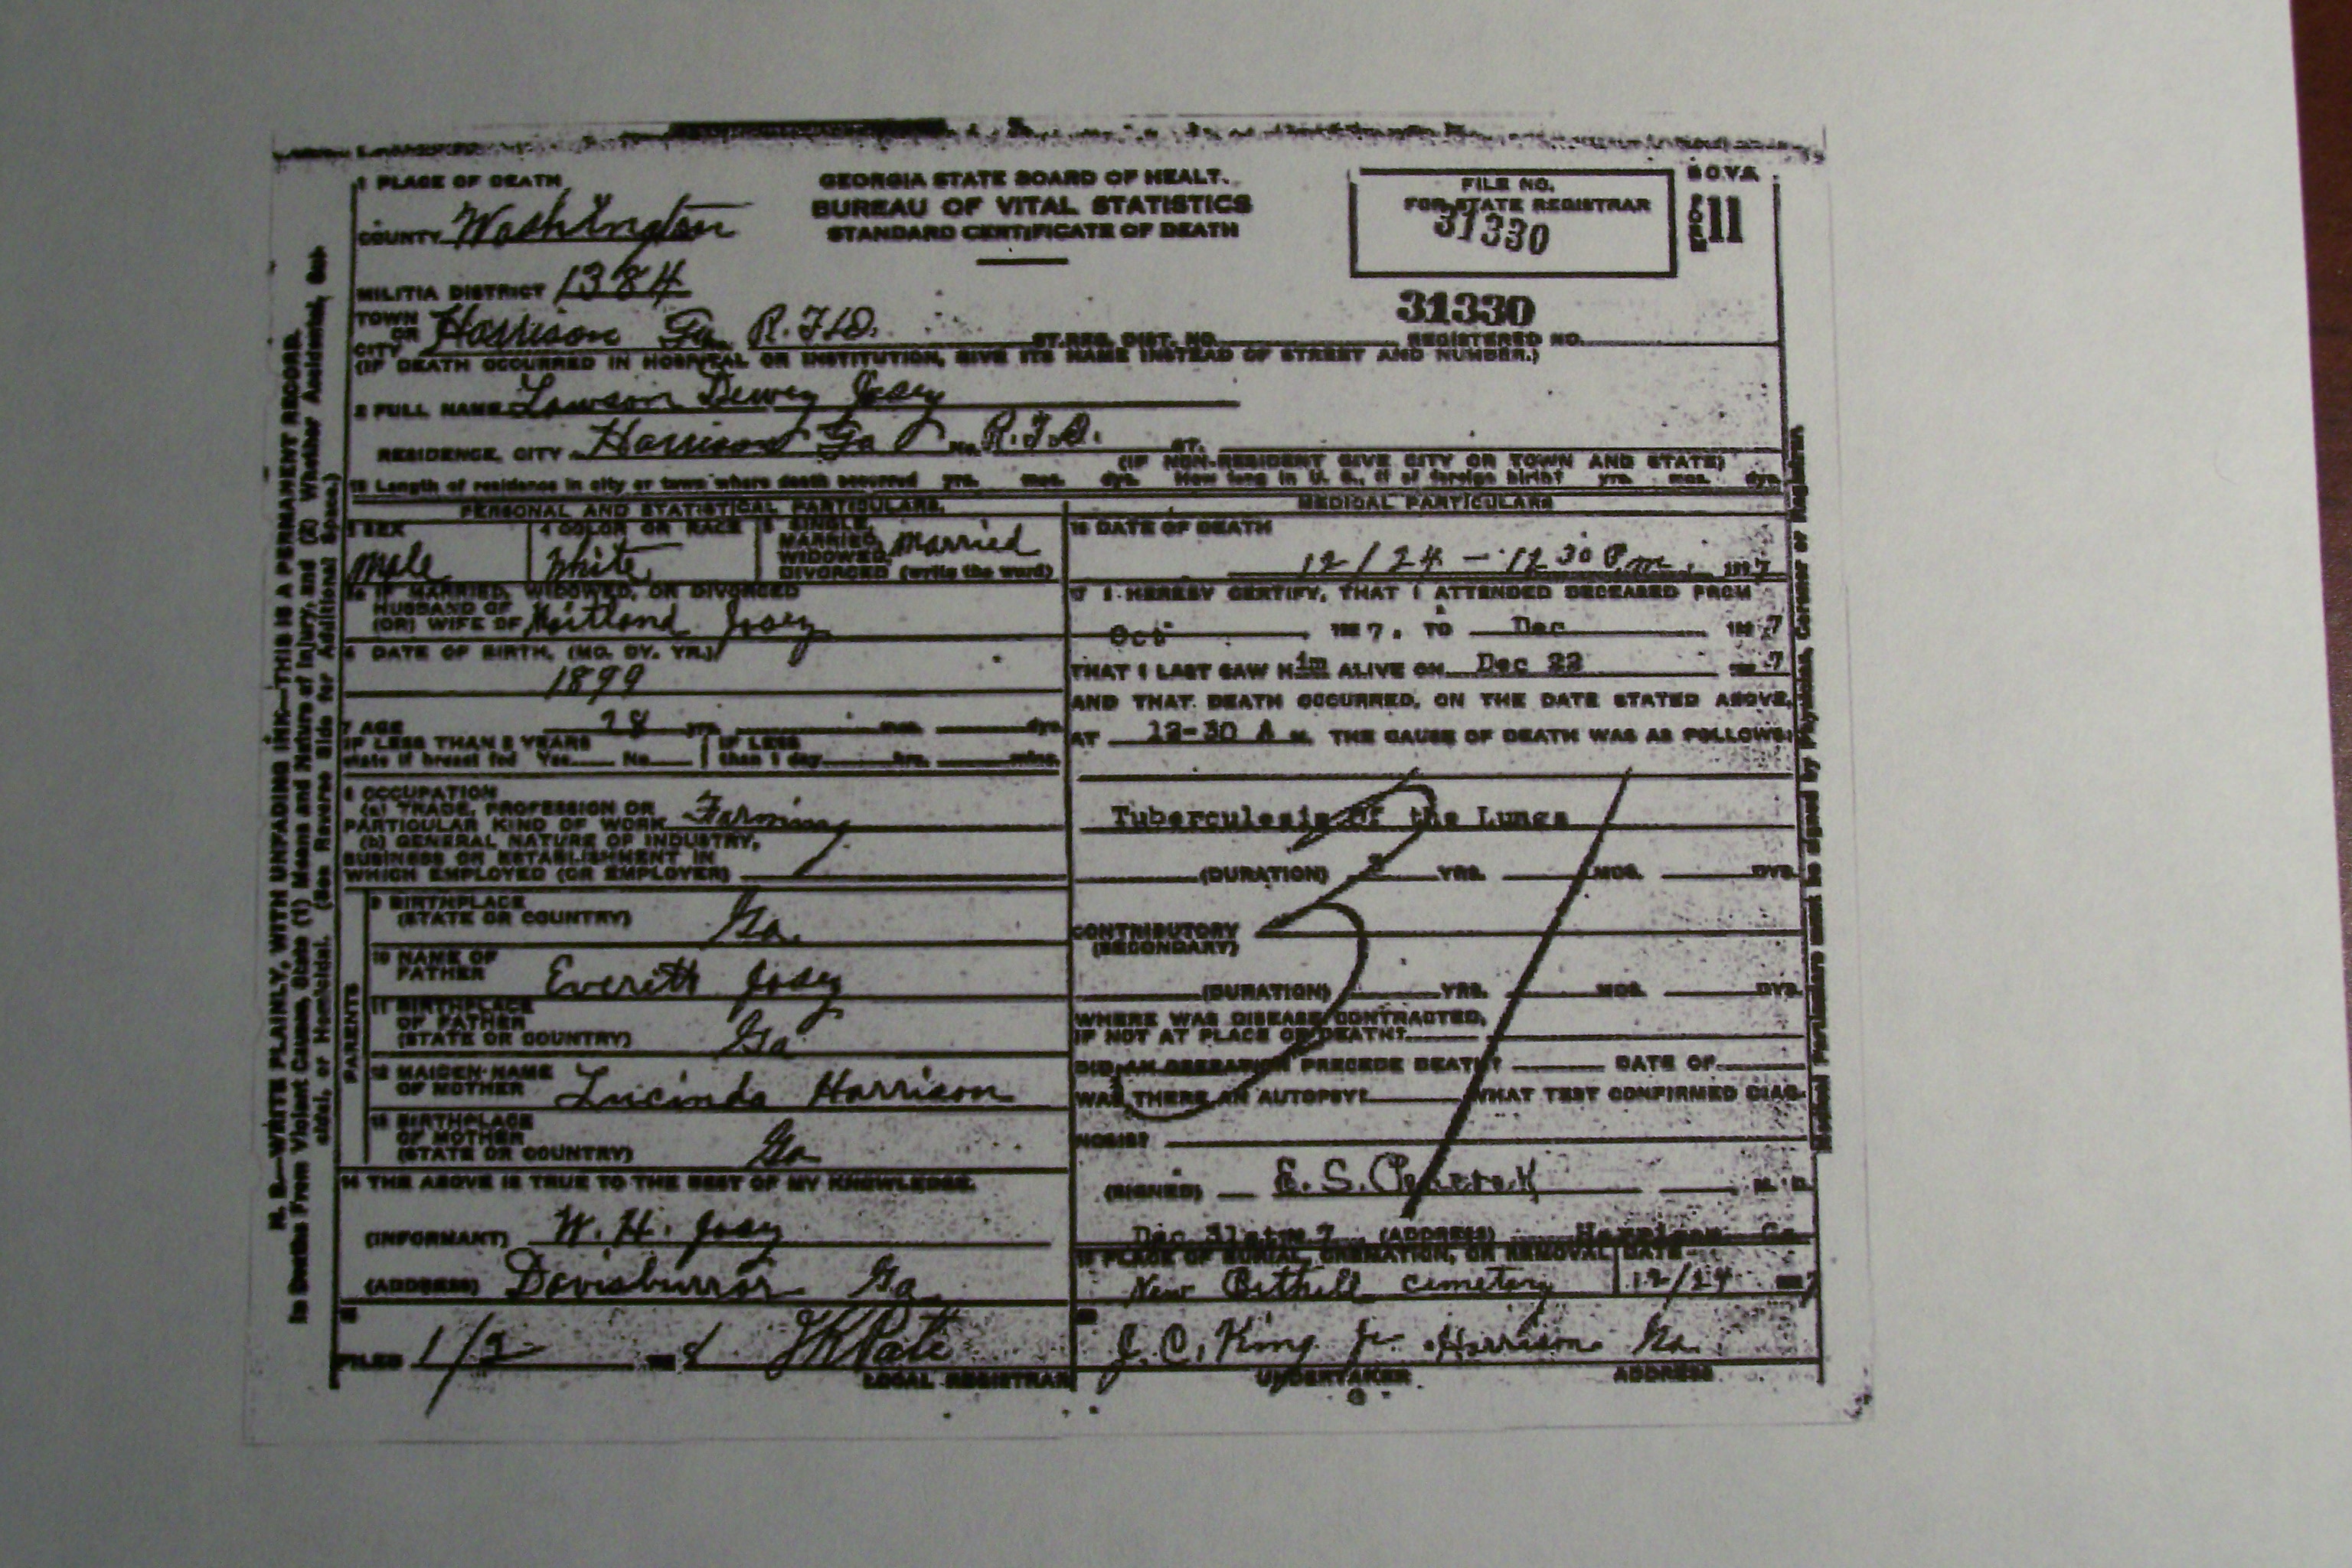 1 PLACE OF DEATH
COUNTY Washington
MILITIA DISTRICT 1384
TOWN OR CITY Harrison Ga R.F.D. ST. REG. DIST. NO. REGISTERED NO.
GEORGIA STATE BOARD OF HEALT.
BUREAU OF VITAL STATISTICS
STANDARD CERTIFICATE OF DEATH
FILE NO.
FOR STATE REGISTRAR
31330
B.O.V.S.
FORM 11
31330
(IF DEATH OCCURRED IN HOSPITAL OR INSTITUTION, GIVE ITS NAME INSTEAD OF STREET AND NUMBER.)
2 FULL NAME Lawson Dewey Josey
RESIDENCE, CITY Harrison Ga No. R.F.D. ST.
(IF NON-RESIDENT GIVE CITY OR TOWN AND STATE)
Length of residence in city or town where death occurred yrs. mos. dys. How long in U. S., if of foreign birth? yrs. mos. dys.
PERSONAL AND STATISTICAL PARTICULARS
3 SEX
Male
4 COLOR OR RACE
White
5 SINGLE,
MARRIED,
WIDOWED,
DIVORCED (write the word)
Married
IF MARRIED, WIDOWED, OR DIVORCED
HUSBAND OF
(OR) WIFE OF Josey
6 DATE OF BIRTH, (MO. DY. YR.)
1899
7 AGE 28 yrs. mos. dys.
IF LESS THAN 2 YEARS
state if breast fed Yes No
IF LESS
than 1 day hrs. mins.
8 OCCUPATION
(a) TRADE, PROFESSION OR
PARTICULAR KIND OF WORK Farming
(b) GENERAL NATURE OF INDUSTRY,
BUSINESS OR ESTABLISHMENT IN
WHICH EMPLOYED (OR EMPLOYER)
PARENTS
9 BIRTHPLACE
(STATE OR COUNTRY) Ga.
10 NAME OF
FATHER Everitt Josey
11 BIRTHPLACE
OF FATHER
(STATE OR COUNTRY) Ga
12 MAIDEN NAME
OF MOTHER Lucinda Harrison
13 BIRTHPLACE
OF MOTHER
(STATE OR COUNTRY) Ga
14 THE ABOVE IS TRUE TO THE BEST OF MY KNOWLEDGE.
(INFORMANT) W. H. Josey
(ADDRESS) Ga.
FILED 1/2 8 Pate
LOCAL REGISTRAR
MEDICAL PARTICULARS
16 DATE OF DEATH
12/24 - 12 30 P m. 1927
17 I HEREBY CERTIFY, THAT I ATTENDED DECEASED FROM
Oct 1927, TO Dec 1927
THAT I LAST SAW Him ALIVE ON Dec 22 1927
AND THAT DEATH OCCURRED, ON THE DATE STATED ABOVE,
AT 12-30 A M. THE CAUSE OF DEATH WAS AS FOLLOWS:
Tuberculosis of the Lungs
(DURATION) YRS. MOS. DYS.
CONTRIBUTORY
(SECONDARY)
(DURATION) YRS. MOS. DYS.
WHERE WAS DISEASE CONTRACTED,
IF NOT AT PLACE OF DEATH?
DID AN OPERATION PRECEDE DEATH? DATE OF
WAS THERE AN AUTOPSY? WHAT TEST CONFIRMED DIAG-
NOSIS?
31
(SIGNED) E. S. M. D.
Dec 31st 7 (ADDRESS) Harrison Ga
PLACE OF BURIAL, CREMATION, OR REMOVAL DATE
New Bethell cemetery 12/24 1927
J. C. King Jr. Harrison Ga.
UNDERTAKER ADDRESS
N. B.—WRITE PLAINLY, WITH UNFADING INK—THIS IS A PERMANENT RECORD.
In Deaths From Violent Causes, State (1) Means and Nature of Injury, and (2) Whether Accidental, Sui-
cidal, or Homicidal. (See Reverse Side for Additional Space.)
Medical Particulars must be signed by Physician, Coroner or Registrar.